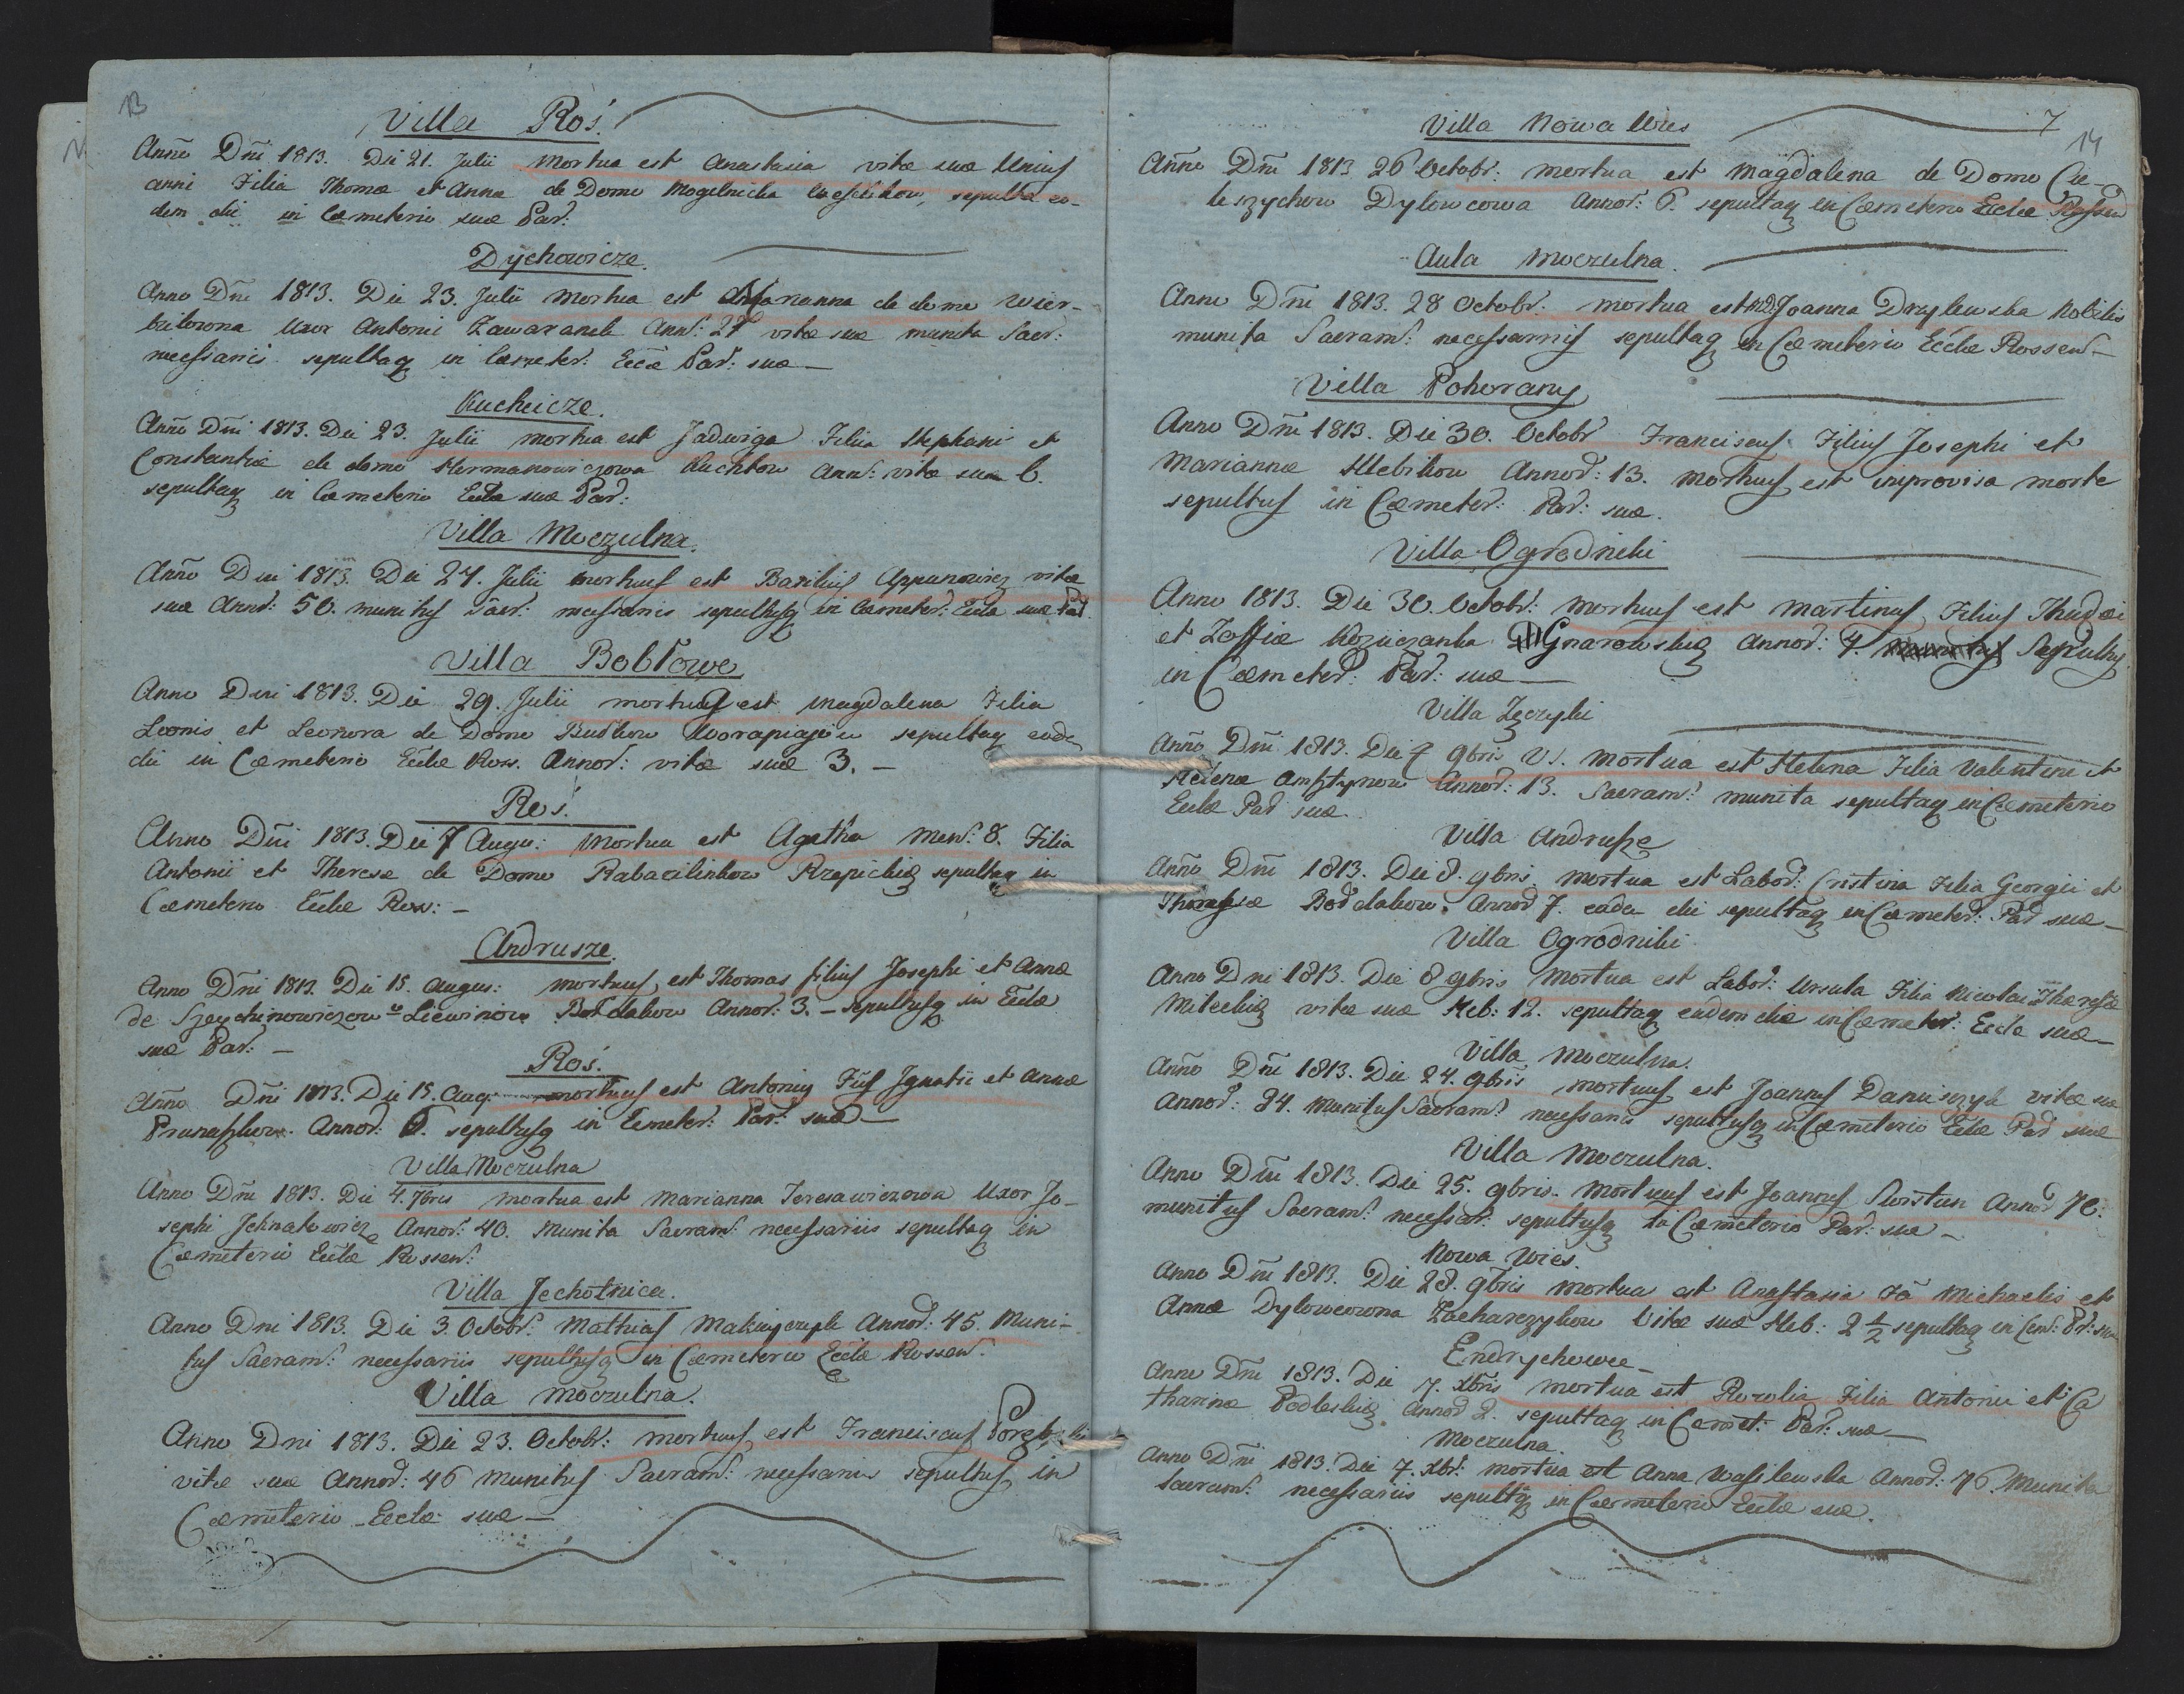 13
Villa Roś.
Anno Dni 1813. Die 21. Julii mortua est Anastasia vitæ suæ Unius
anni Filia Thomæ et Annæ de Domo Mogilnicka sepulta eo-
dem die in Cæmeterio suæ Par:
Dychowicze.
Anno Dni 1813. Die 23. Julii mortua est Marianna de domo Wier-
biłowna Uxor Antonii Zawaranek Ann: 27 vitæ suæ munita Sacr:
necessariis sepultaq in Cæmeter: Eccæ Par: suæ —
Kucheicze.
Anno Dni 1813. Die 23. Julii mortua est Jadwiga Filia Stephani et
Constantiæ de domo Hermanowiczowa Kuchtow Ann: vitæ suæ 6.
sepultaq in Cæmeterio Eccle suæ Par:
Villa Moczulna.
Anno Dni 1813. Die 24. Julii mortuus est Basilius Appanowicz vitæ
suæ Annor: 50. munitus Sacr: necessariis sepultusq in Cæmeter: Eccle suæ Par
Villa Bobłowe
Anno Dni 1813. Die 29. Julii mortua est Magdalena Filia
Leonis et Leonora de Domo Budkow sepultaq eode
die in Cæmeterio Eccle Ross. Annor: vitæ suæ 3. —
Roś.
Anno Dni 1813. Die 7 Augu: mortua est Agatha Mens: 8. Filia
Antonii et Theresæ de Domo Rzepickiq sepultaq in
Cæmeterio Eccle Ross: —
Andrusze.
Anno Dni 1813. Die 15. Augus: mortuus est Thomas filius Josephi et Annæ
de Bordakow Annor: 3. — sepultusq in Eccle
suæ Par: —
Roś.
Anno Dni 1813. Die 15. Aug mortuus est Antonius Fius Ignatii et Annæ
Annor: 6. sepultusq in Cemeter: Par: suæ —
Villa Moczulna
Anno Dni 1813. Die 4. 7bris mortua est Marianna Teresawiczowa Uxor Jo-
sephi Annor: 40. Munita Sacram: necessariis sepultaq in
Cæmeterio Eccle Rossen:
Villa Jechotnica.
Anno Dni 1813. Die 3. Octobr: Mathias Annor: 45. Muni-
tus Sacram: necessariis sepultusq in Cæmeterio Eccle Rossen:
Villa Moczulna.
Anno Dni 1813. Die 23. Octobr: mortuus est Franciscus
vitæ suæ Annor: 46 Munitus Sacram: necessariis sepultus in
Cæmeterio Eccle suæ —
7
14
Villa Nowa Wies
Anno Dni 1813 26 Octobr: mortua est Magdalena de Domo Cie-
leszychow Dylowcowa Annor: 6. sepultaq in Cæmeterio Eccle Rossen
Aula Moczulna.
Anno Dni 1813. 28 Octobr: mortua est Joanna Drylewska Nobilis
munita Sacram: necessariis sepultaq in Cæmeterio Eccle Rossen: —
Villa Pohorany
Anno Dni 1813. Die 30. Octobr Franciscus Filius Josephi et
Mariannæ Hlebikow Annor: 13. mortuus est improvisa morte
sepultus in Cæmeter: Par: suæ.
Villa Ogrodniki
Anno 1813. Die 30. Octobr: mortuus est Martinus Filius Thadæi
et Zoffiæ Gnarowskiq Annor: 4. Sepultus
in Cæmeter: Par: suæ —
Villa Zęczyki
Anno Dni 1813. Die 7 9bris V.S. mortua est Helena Filia Valentini et
Helenæ Annor: 13. Sacram: munita sepultaq in Cæmeterio
Eccle Par suæ.
Villa Andrusze
Anno Dni 1813. Die 8. 9bris mortua est Labor: Cristina Filia Georgii et
Theresæ Bordakow. Annor 7. eade die sepultaq in Cæmeter: Par suæ —
Villa Ogrodniki
Anno Dni 1813. Die 8 9bris Mortua est Labor: Ursula Filia Nicolai Theresiæ
vitæ suæ Heb: 12. sepultaq eadem die in Cæmeter: Eccle suæ —
Villa Moczulna.
Anno Dni 1813. Die 24. 9bris mortuus est Joannes Daniszczyk vitæ suæ
Annor: 34. Munitus Sacram: necessariis sepultusq in Cæmeterio Eccle Par suæ
Villa Moczulna.
Anno Dni 1813. Die 25. 9bris. Mortuus est Joannes Annor 70.
munitus Sacram: necessar: sepultusq in Cæmeterio Par: suæ —
Nowa Wies.
Anno Dni 1813. Die 28. 9bris mortua est Anastasia Fa Michaelis et
Annæ Dylowcowna Zacharczykow Vitæ suæ Heb: 2 1/2 sepultaq in Cem: Pr: suæ
Endrychowce —
Anno Dni 1813. Die 7. Xbris mortua est Rozolia Filia Antonii et Ca
tharinæ Podleskiq Annor 2. sepultaq in Cæmet: Par: suæ —
Moczulna.
Anno Dni 1813. Die 7. Xbr: mortua est Anna Wasilewska Annor: 76 Munita
Sacram: necessariis sepultaq in Cæmeterio Eccle suæ.